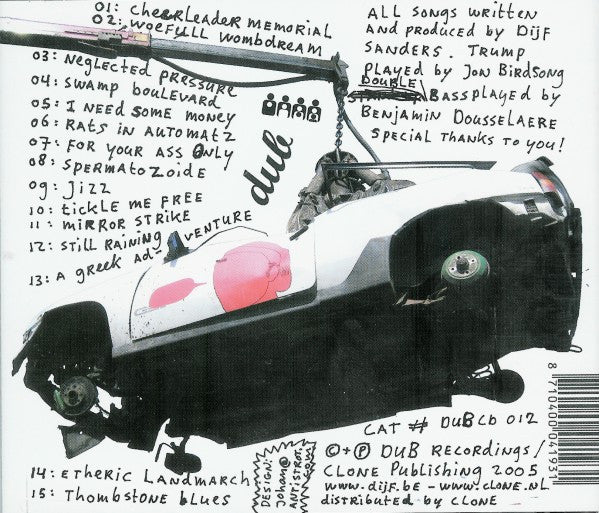 01: Cheerleader Memorial
02: Woefull Wombdream
03: Neglected Pressure
04: Swamp Boulevard
05: I Need Some Money
06: Rats in Automatz
07: For Your Ass Only
08: Spermatozoide
09: Jizz
10: Tickle Me Free
11: Mirror Strike
12: Still Raining
13: A Greek Ad-Venture
14: Etheric Landmarch
15: Thombstone Blues
All songs written
and produced by Dijf
Sanders. Trump
played by Jon Birdsong
Double
Bassplayed by
Benjamin Dousselaere
Special thanks to you!
dub
8 710400 041931
Cat # DUBCD 012
© + ℗ Dub Recordings/
Clone Publishing 2005
www.dijf.be - www.clone.nl
distributed by Clone
Design:
Johan@
Antistrot.